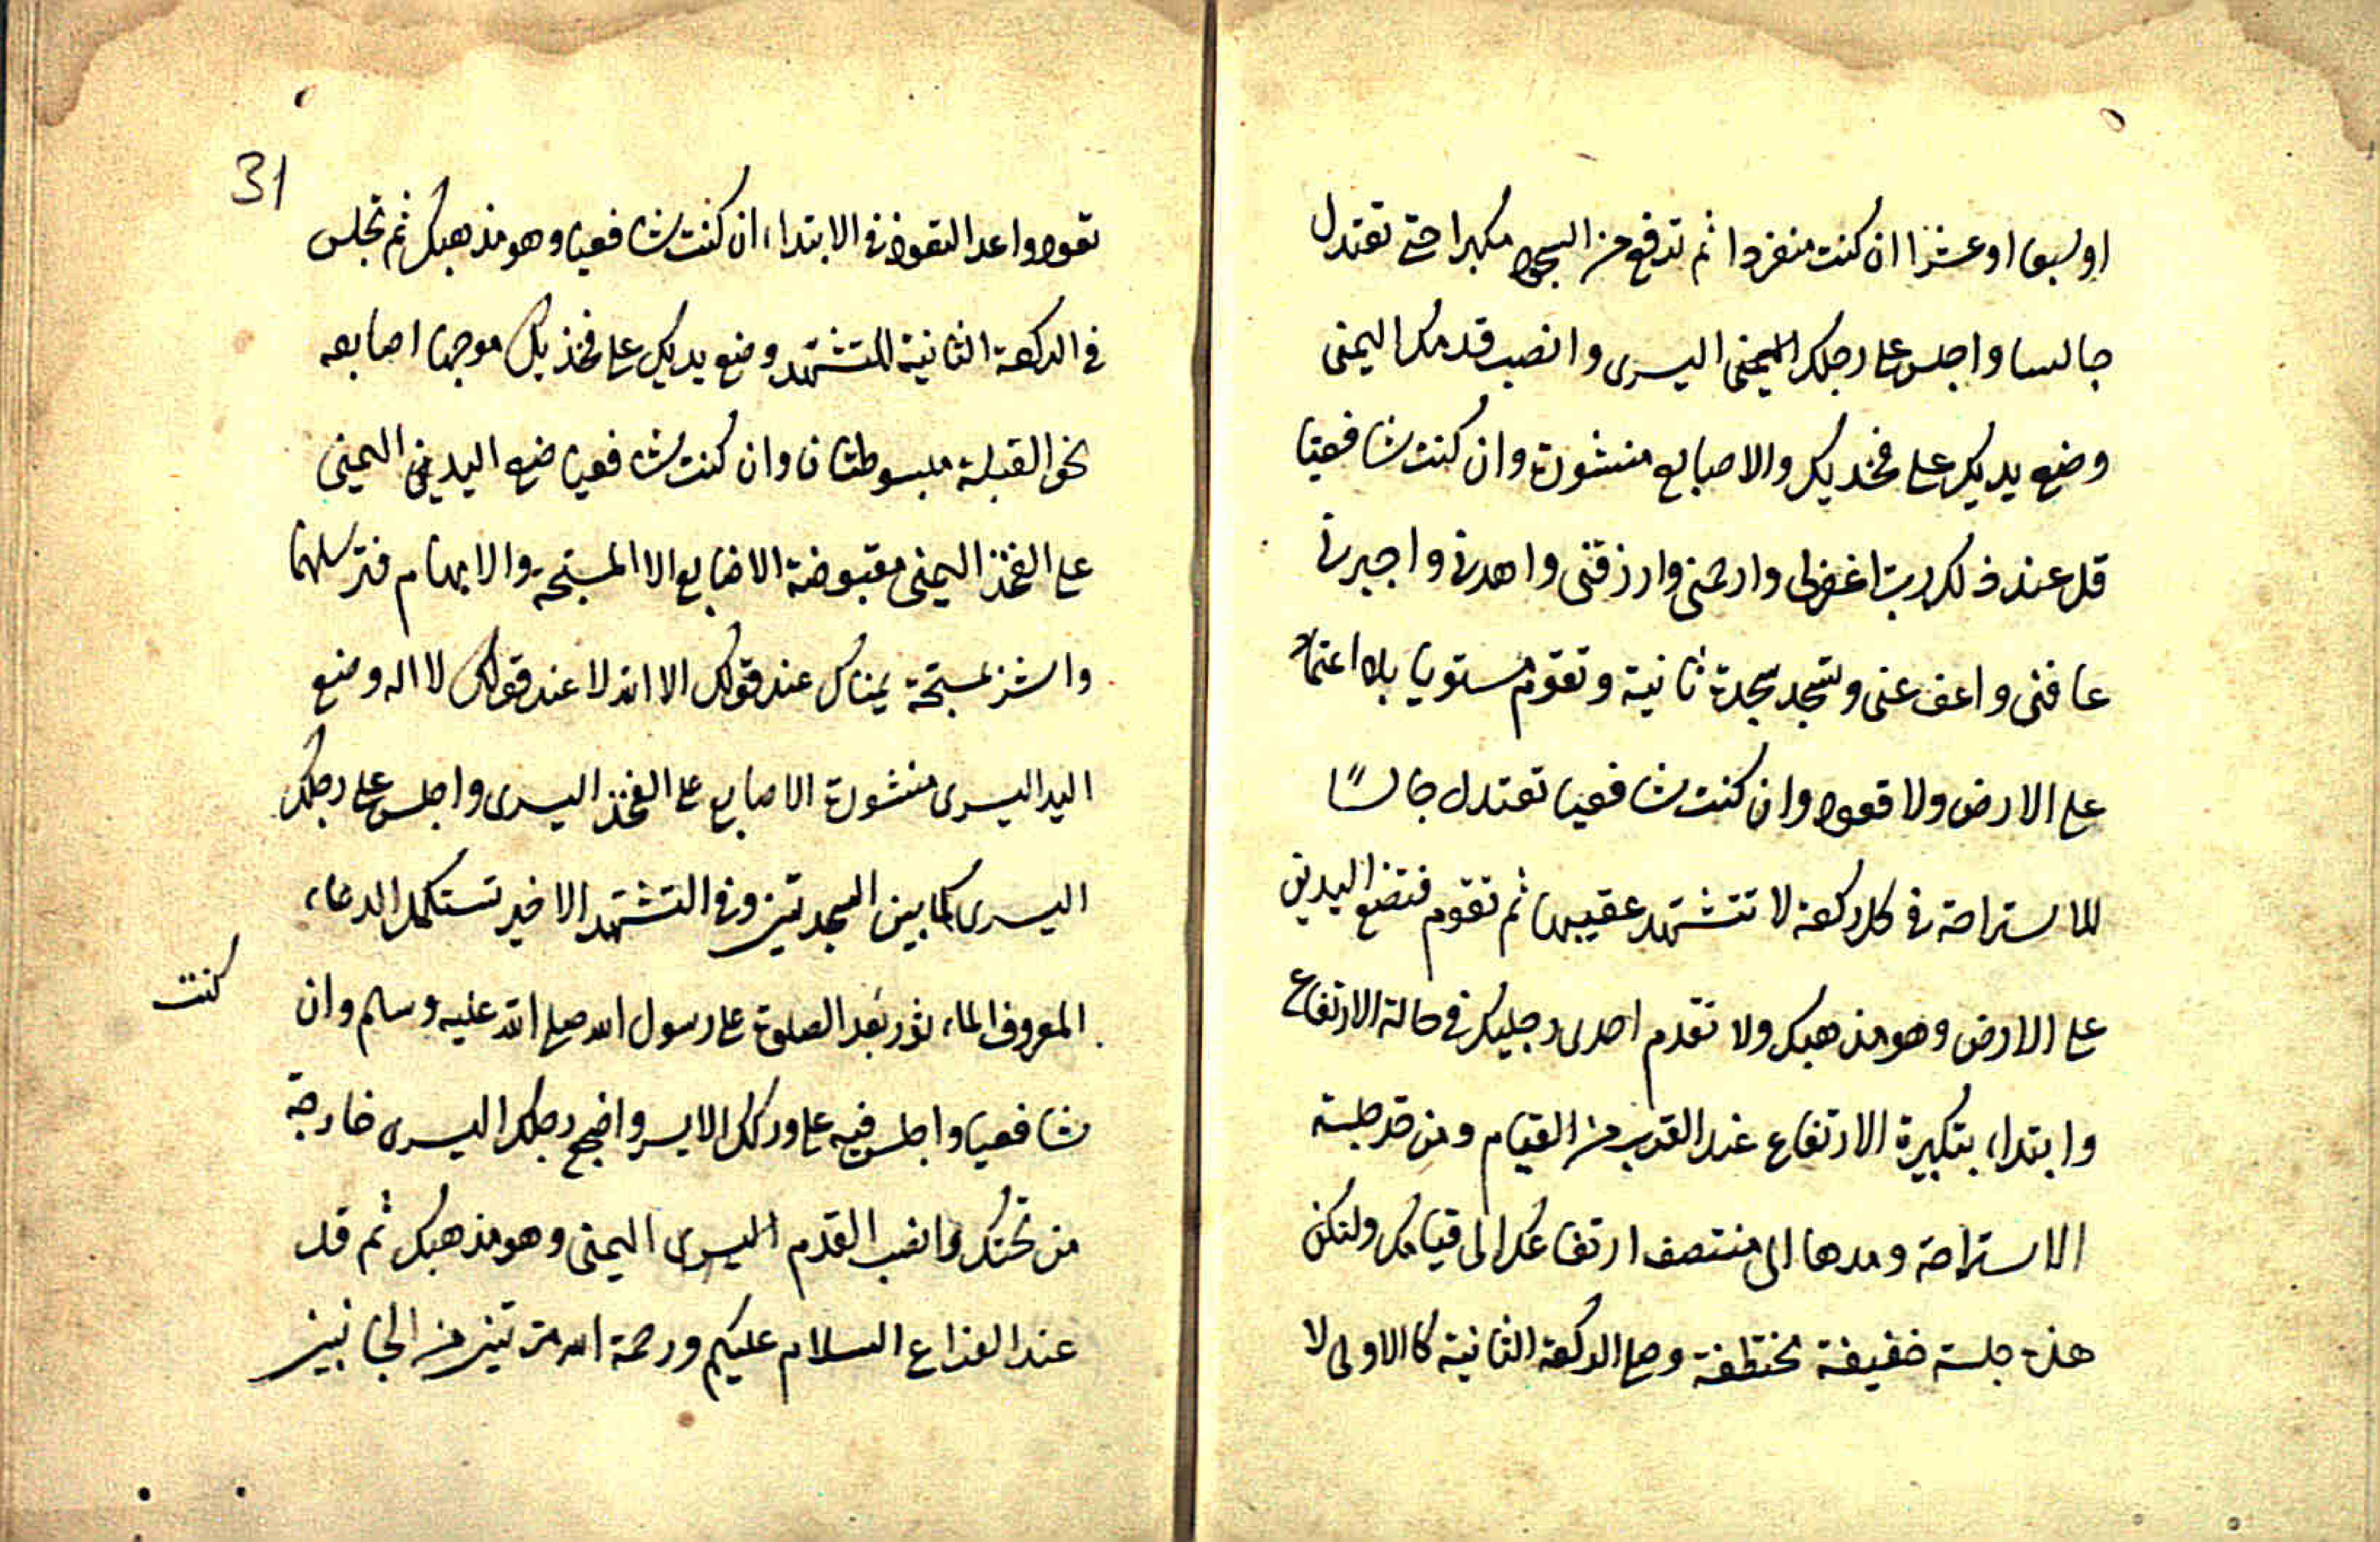 او سبعا او عشرا ان كنت منفردا ثم ترفع من السجود مكبرا حتى تعتدل
جالسا واجلس على رجلك اليمنى اليسرى وانصب قدمك اليمنى
وضع يديك على فخديك والاصابع منشورة وان كنت شافعيا
قل عند ذلك رب اغفرلى وارحمنى وارزقنى واهدنى واجبرنى
عافنى واعف عنى وتسجد سجدة ثانية وتقوم مستويا بلا اعتماد
على الارض ولا قعود وان كنت شافعيا تعتدل جالسًا
للاستراحة فى كل ركعة لا تتشهد عقيبها ثم تقوم فتضع اليدين
على الارض وهو مذهبك ولا تقدم احدى رجليك فى حالة الارتفاع
وابتداء بتكبيرة الارتفاع عند القرب من القيام ومن حد جلسة
الاستراحة ومدها الى منتصف ارتفاعك الى قيامك ولتكن
هذه جلسة خفيفة مختطفة وصل الركعة الثانية كالاولى لا
31
تعود واعد التعوذ فى الابتداء ان كنت شافعيا وهو مذهبك ثم تجلس
فى الركعة الثانية للتشهد وضع يديك على فخذيك موجها اصابعه
نحو القبلة مبسوطتان وان كنت شافعيا ضع اليد اليمنى
على الفخذ اليمنى مقبوضة الاضابع الا المسبحة والابهام فترسلهما
واشر بمسبحة يمناك عند قولك الا الله لا عند قولك لا اله وضع
اليد اليسرى منشورة الاصابع على الفخذ اليسرى واجلس على رجلك
اليسرى كما بين السجدتين وفى التشهد الاخير تستكمل الدعاء
المعروف الماءثور بعد الصلوة على رسول الله صلى الله عليه وسلم وان
كنت
شافعيا واجلس فيه على وركك الايسر واضجع رجلك اليسرى خارجة
من تحتك وانصب القدم اليسرى اليمنى وهو مذهبك ثم قل
عند الفراغ السلام عليكم ورحمة الله مرتين من الجانبين